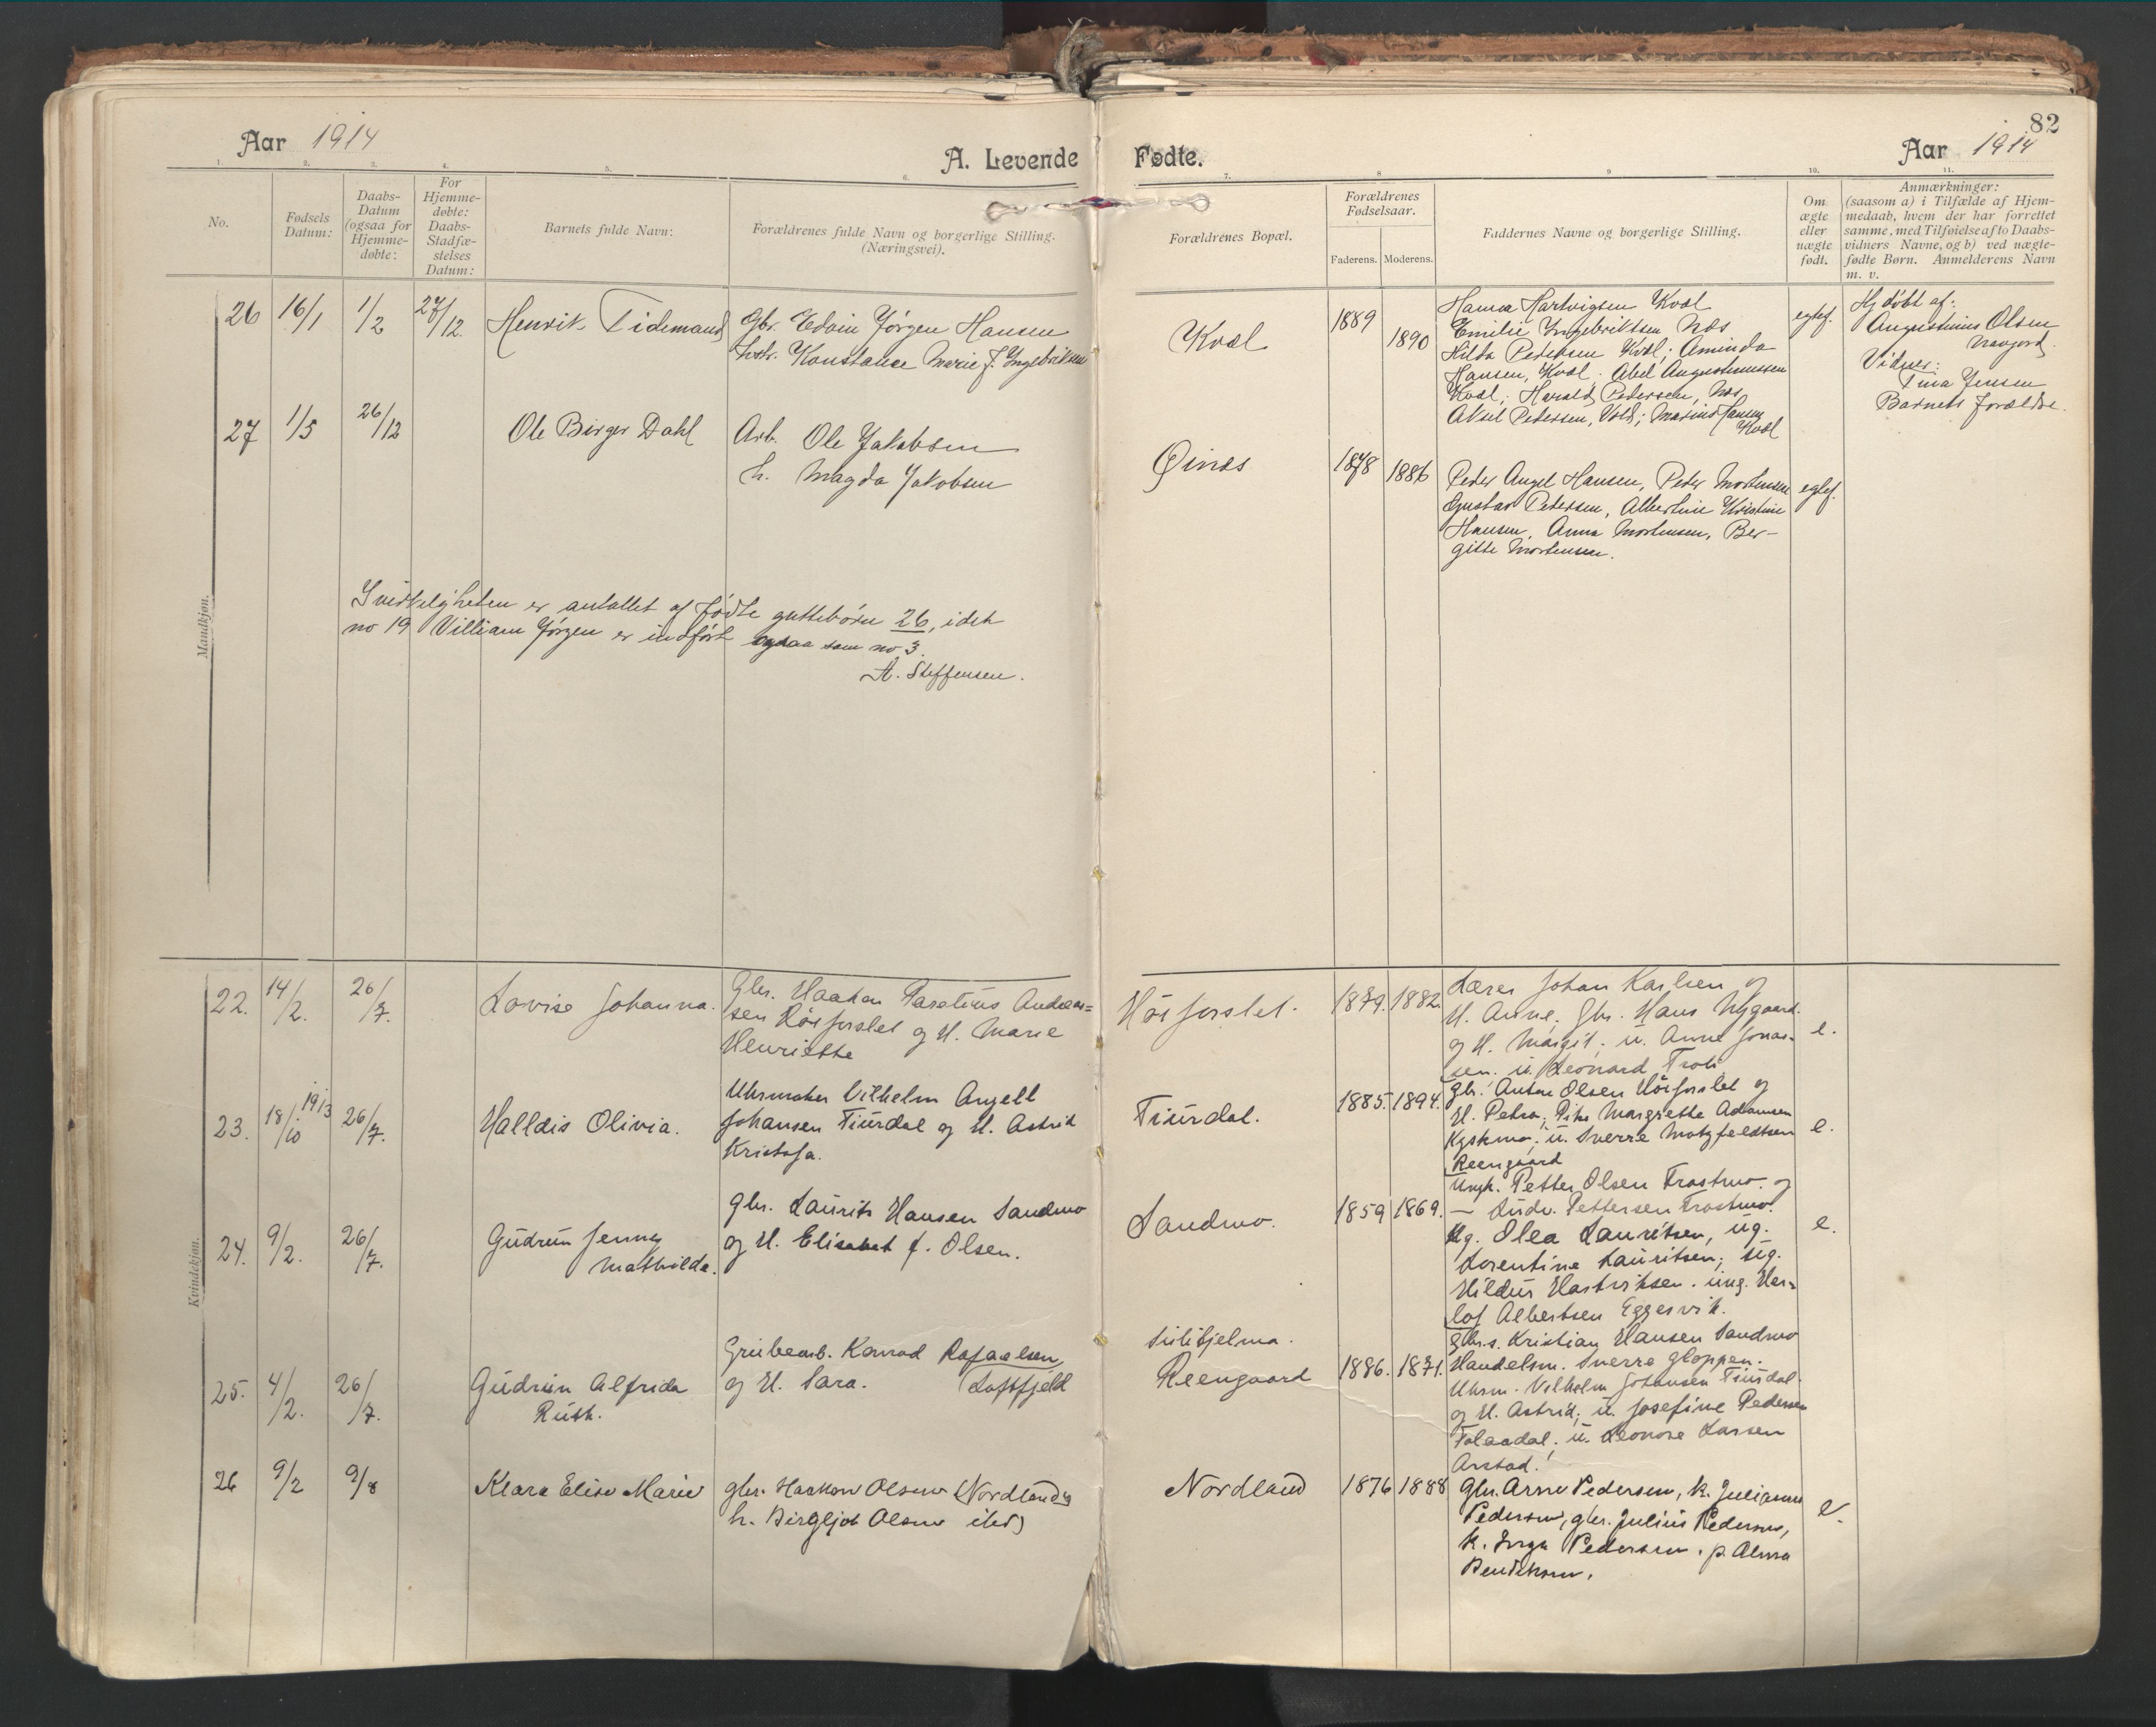 Aar 1914
A. Levende Fødte.
Aar 1914
82
1. 2. 3. 4. 5. 6. 7. 8 9 10. 11.
No.
Fødsels
Datum:
Daabs-
Datum
(ogsaa for
Hjemme-
døbte:
For
Hjemme-
døbte:
Daabs-
Stadfæ-
stelses
Datum:
Barnets fulde Navn:
Forældrenes fulde Navn og borgerlige Stilling.
(Næringsvei).
Forældrenes Bopæl.
Forældrenes
Fødselsaar.
Faderens. Moderens.
Faddernes Navne og borgerlige Stilling.
Om
ægte
eller
uægte
født.
Anmærkninger:
(saasom a) i Tilfælde af Hjem-
medaab, hvem der har forrettet
samme, med Tilføielse af to Daabs-
vidners Navne, og b) ved uægte-
fødte Børn. Anmelderens Navn
m. v.
Mandkjøn.
26 16/1 1/2 27/12. Henrik Tidemand
Gbr. Edvin Jørgen Hansen
hstr. Konstance Marie f. Ingebriktsen
Kvæl
1889 1890
Hanna Hartvigsen Kvæl
Emilie Ingebriktsen Næs
Hilda Pedersen Kvæl; Aminda
Hansen, Kvæl. Abel Augustinussen
Kvæl; Harald Pedersen, Næs
Aksel Pedersen, Vold; Marius Hansen
Kvæl
egtef.
Hj.døbt af:
Augustinus Olsen
Vidner:
Tina Jensen
Barnets forældre.
27 1/5 26/12 Ole Birger Dahl
Arb. Ole Jakobsen
h. Magda Jakobsen
Øinæs
1878 1886
Peder Angel Hansen, Peder Mortensen
Gustav Petersen, Albertine Kristine
Hansen, Anna Mortensen, Ber-
gitte Mortensen.
egtef.
I virkeligheten er antallet af fødte guttebørn 26, idet
no 19 Villiam Jørgen er indført ogsaa som no 3.
A. Steffensen.
Kvindekjøn.
22. 14/2. 26/7. Lovise Johanna.
Gbr. Haakon Parelius Andreas=
sen Høiforslet og H. Marie
Henriette
Høiforslet.
1879. 1882.
Lærer Johan Karlsen og
H. Anne, Gbr. Hans Nygaard.
og H. Margit; u. Anne Jonas-
sen. u. Leonard
e.
23. 18/10 1913 26/7. Halldis Olivia.
Uhrmaker Vilhelm Angell
Johansen Tiurdal og H. Astrid
Kristofa.
Tiurdal.
1885. 1894.
Gbr. Anton Olsen Høiforslet og
H. Petra; Pike Margrethe Adamsen
u. Sverre Motzfeldtsen
Reengaard
e.
24. 9/2. 26/7. Gudrun Jenny
Mathilde.
Gbr. Laurits Hansen Sandmo
og H. Elisabet f. Olsen.
Sandmo.
1859 1869.
Ungk. Petter Olsen Trostmo. og
— Ludv. Pettersen Trostmo.
Ug. Olea Lauritsen, ug.
Lorentine Lauritsen; ug.
Hildur Hartviksen. ung. Her=
lof Albertsen Eggesvik.
e.
25. 4/2. 26/7. Gudrun Alfrida
Ruth.
Grubearb. Konrad Rafaelsen
og H. Sara. (Loftfjeld
Sulitjelma.
Reengaard
1886. 1871.
Gbr.s. Kristian Hansen Sandmo
Handelsm. Sverre Gloppen.
Uhrm. Vilhelm Johansen Tiurdal.
og H. Astrid; u. Josefine Pedersen
u. Leonore Larsen
Arstad.
26 9/2 9/8 Klara Elise Marie
gbr. Haakon Olsen (Nordland og
h. Bergljot Olsen ibid)
Nordland
1876 1888
Gbr. Arne Pedersen, k. Julianne
Pedersen, gbr. Julius Pedersen,
k. Inga Pedersen. p. Alma
Bendiksen.
e.